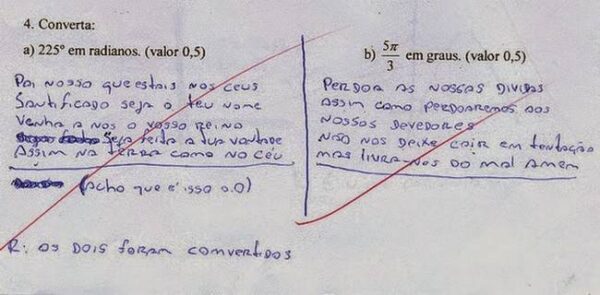 4. Converta:
a) 225º em radianos. (valor 0,5)
Pai nosso que estais nos ceus
Santificado seja o teu nome
Venha a nos o vosso reino
seja feita a tua vontade
Assim na terra como no céu
(acho que é isso o.O)
b) 5π/3 em graus. (valor 0,5)
PERDOA AS NOSSAS DIVIDAS
ASSIM COMO PERDOAREMOS AOS
NOSSOS DEVEDORES
NÃO NOS DEIXE CAIR EM TENTAÇÃO
MAS LIVRA-NOS DO MAL AMEM
R: OS DOIS FORAM COMVERTIDOS